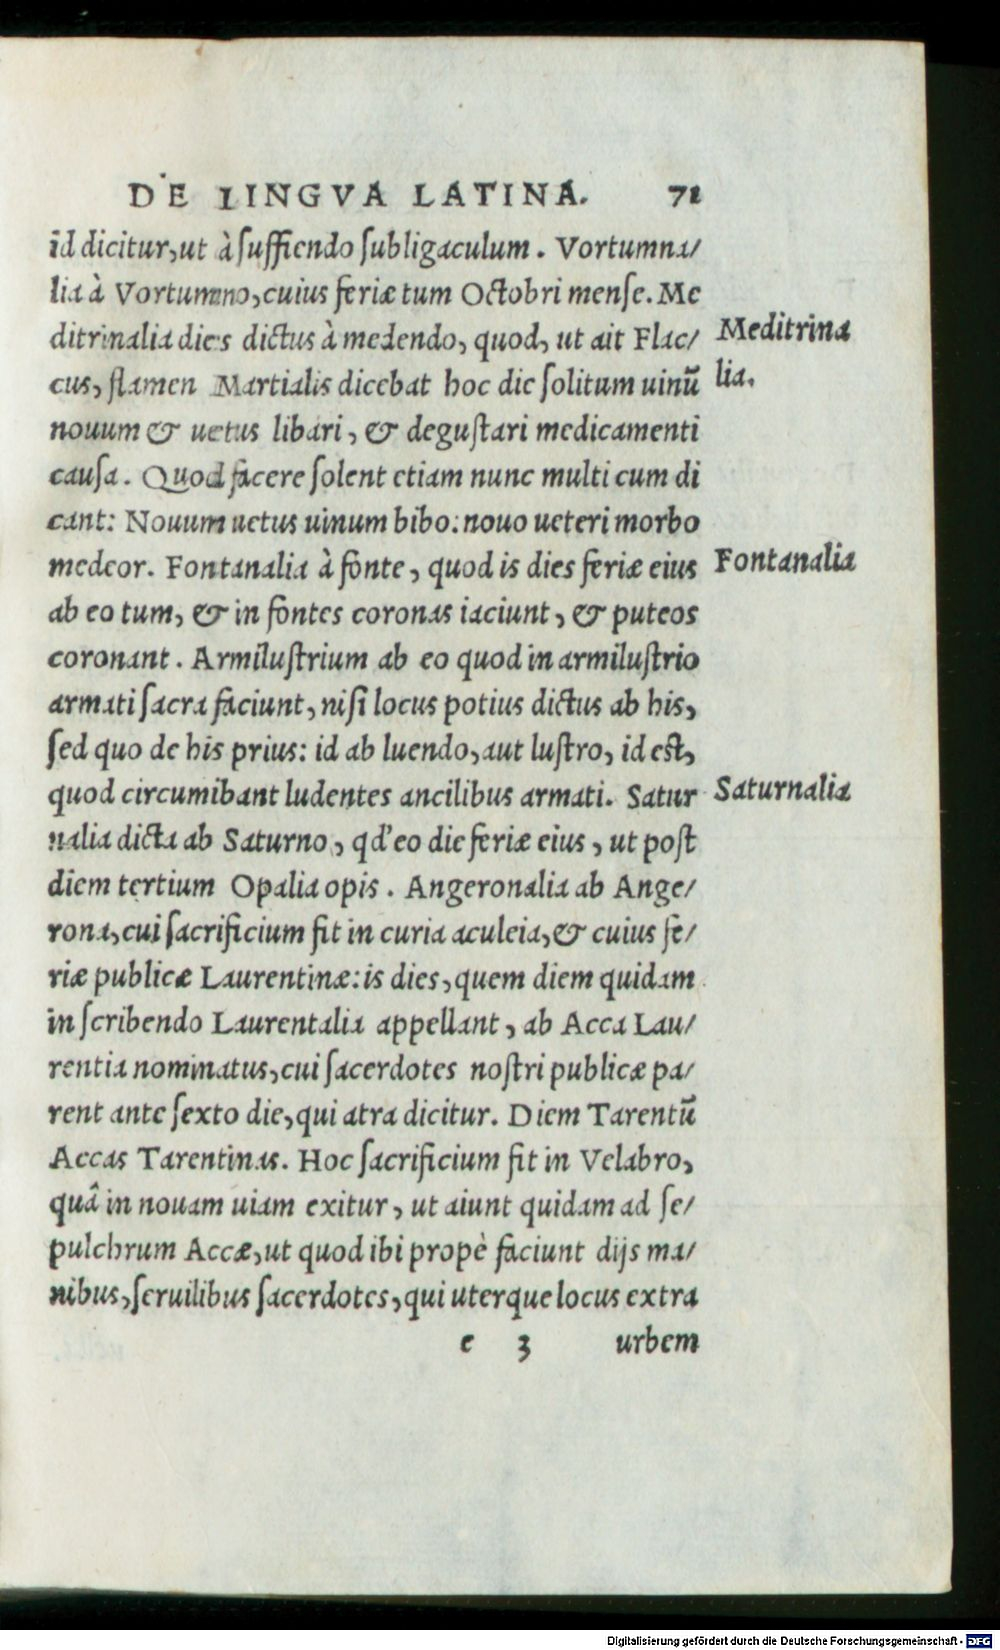 DE LINGVA LATINA. 71
id dicitur, ut à suffiendo subligaculum. Vortumna/
lia à Vortumno, cuius feriæ tum Octobri mense. Me
ditrinalia dies dictus à medendo, quod, ut ait Flac/
cus, flamen Martialis dicebat hoc die solitum uinū
nouum & uetus libari, & degustari medicamenti
causa. Quod facere solent etiam nunc multi cum di
cant: Nouum uetus uinum bibo: nouo ueteri morbo
medeor. Fontanalia à fonte, quod is dies feriæ eius
ab eo tum, & in fontes coronas iaciunt, & puteos
coronant. Armilustrium ab eo quod in armilustrio
armati sacra faciunt, nisi locus potius dictus ab his,
sed quo de his prius: id ab luendo, aut lustro, id est,
quod circumibant ludentes ancilibus armati. Satur
nalia dicta ab Saturno, qd' eo die feriæ eius, ut post
diem tertium Opalia opis. Angeronalia ab Ange/
rona, cui sacrificium fit in curia aculeia, & cuius fe/
riæ publicæ Laurentinæ: is dies, quem diem quidam
in scribendo Laurentalia appellant, ab Acca Lau/
rentia nominatus, cui sacerdotes nostri publicæ pa/
rent ante sexto die, qui atra dicitur. Diem Tarentū
Accas Tarentinas. Hoc sacrificium fit in Velabro,
quâ in nouam uiam exitur, ut aiunt quidam ad se/
pulchrum Accæ, ut quod ibi propè faciunt dijs ma/
nibus, seruilibus sacerdotes, qui uterque locus extra
e 3 urbem
Meditrina
lia.
Fontanalia
Saturnalia
Digitalisierung gefördert durch die Deutsche Forschungsgemeinschaft - DFG